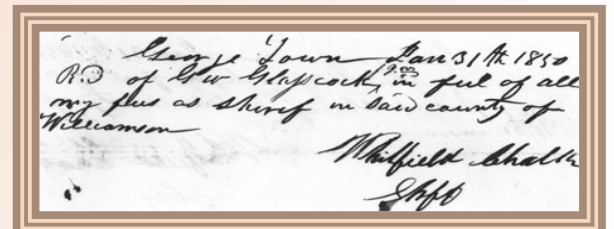 George Town Jan 31th 1850
RD of GW Glasscock in ful of all
my fees as sherif in said county of
Williamson
Whitfield Chalk
Shff